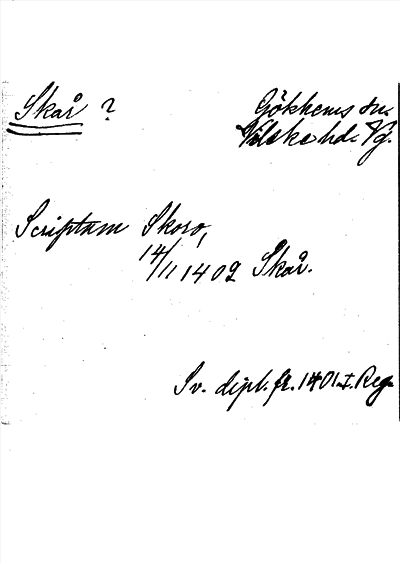 Skår ?
Gökhems sn.
Vilske hd. Vg.
Scriptum Skoro,
14/11 1402 Skår.
Sv. dipl. fr. 1401 I. Reg.